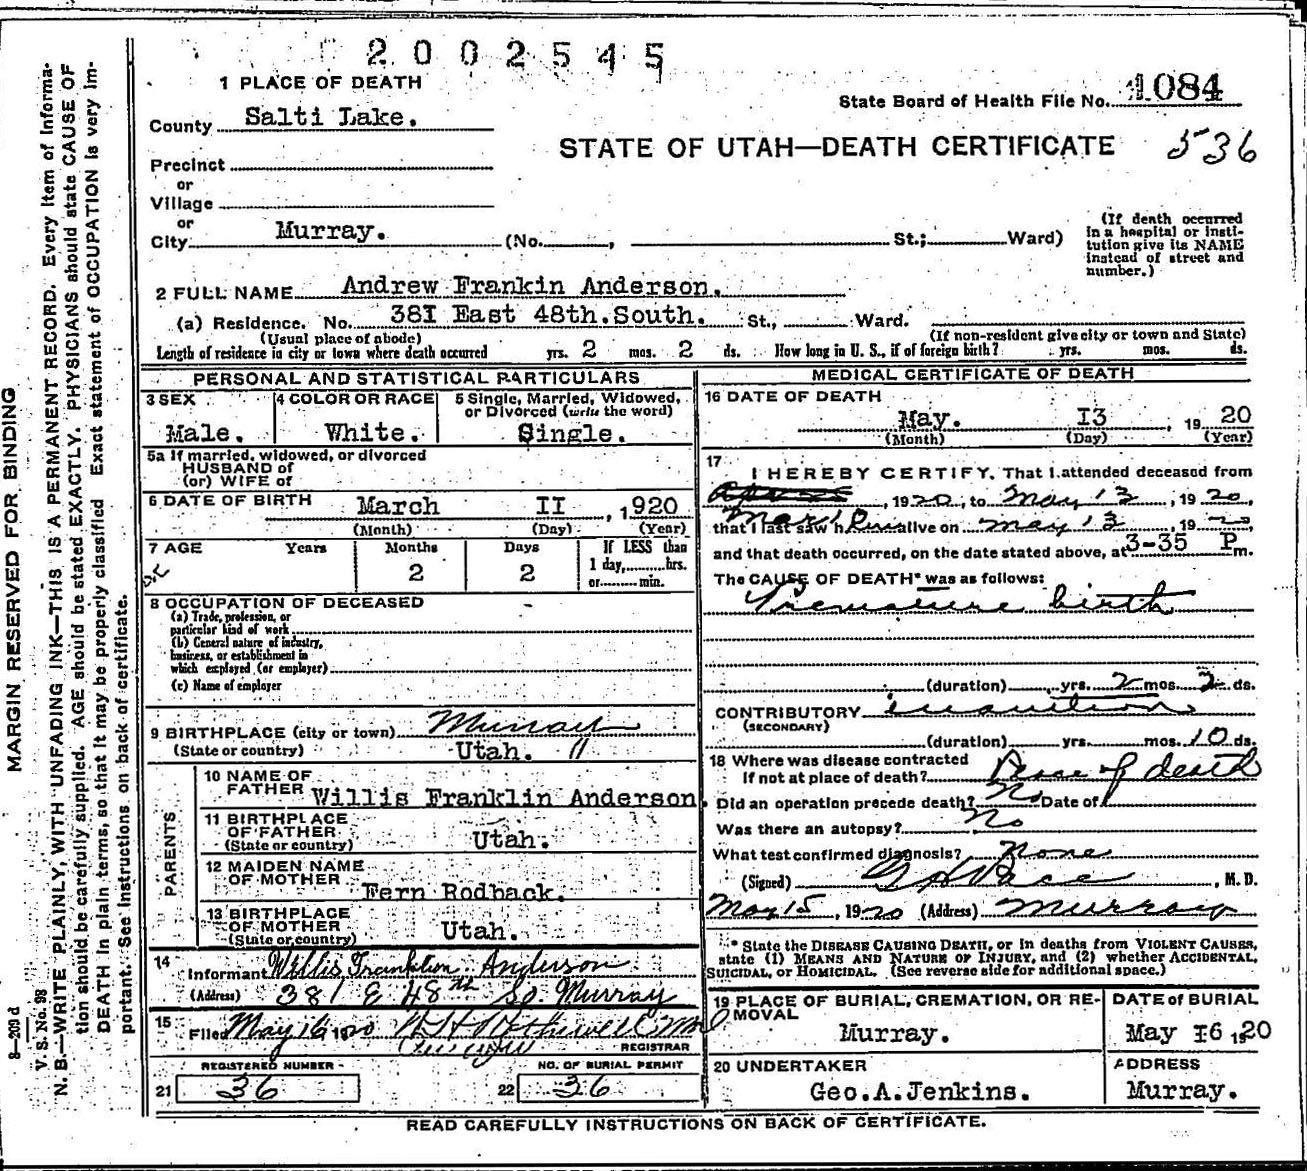 2002545
1 PLACE OF DEATH
State Board of Health File No. 1084
County Salti Lake.
STATE OF UTAH—DEATH CERTIFICATE 536
Precinct
or
Village
or
City Murray. (No. , St.; Ward)
(If death occurred
in a hospital or insti-
tution give its NAME
instead of street and
number.)
2 FULL NAME Andrew Frankin Anderson.
(a) Residence. No. 38I East 48th.South. St., Ward.
(Usual place of abode) (If non-resident give city or town and State)
Length of residence in city or town where death occurred yrs. 2 mos. 2 ds. How long in U. S., if of foreign birth? yrs. mos. ds.
PERSONAL AND STATISTICAL PARTICULARS
3 SEX 4 COLOR OR RACE 5 Single, Married, Widowed,
or Divorced (write the word)
Male. White. Single.
5a If married, widowed, or divorced
HUSBAND of
(or) WIFE of
6 DATE OF BIRTH March II , 1920
(Month) (Day) (Year)
7 AGE Years Months Days If LESS than
1 day, hrs.
2 2 or min.
8 OCCUPATION OF DECEASED
(a) Trade, profession, or
particular kind of work
(b) General nature of industry,
business, or establishment in
which employed (or employer)
(c) Name of employer
9 BIRTHPLACE (city or town) Murray
(State or country) Utah. "
PARENTS
10 NAME OF
FATHER Willis Franklin Anderson.
11 BIRTHPLACE
OF FATHER
(State or country) Utah.
12 MAIDEN NAME
OF MOTHER Fern Rodback.
13 BIRTHPLACE
OF MOTHER
(State or country) Utah.
14
Informant Willis Franklion Anderson
(Address) 381 E 48th So. Murray
15
Filed May 16 1920
REGISTRAR
REGISTERED NUMBER NO. OF BURIAL PERMIT
21 36 22 36
MEDICAL CERTIFICATE OF DEATH
16 DATE OF DEATH
May. I3 , 19 20
(Month) (Day) (Year)
17
I HEREBY CERTIFY, That I attended deceased from
, 1920, to May 13 , 1920,
that I last saw h alive on May 13 , 1920,
and that death occurred, on the date stated above, at 3-35 P m.
The CAUSE OF DEATH* was as follows:
Premature birth
(duration) yrs. 2 mos. 2 ds.
CONTRIBUTORY inanition
(SECONDARY)
(duration) yrs. mos. 10 ds.
18 Where was disease contracted
if not at place of death? Place of death
Did an operation precede death? No Date of
Was there an autopsy? No
What test confirmed diagnosis? None
(Signed) , M. D.
May 15, 1920 (Address) Murray
* State the DISEASE CAUSING DEATH, or in deaths from VIOLENT CAUSES,
state (1) MEANS AND NATURE OF INJURY, and (2) whether ACCIDENTAL,
SUICIDAL, or HOMICIDAL. (See reverse side for additional space.)
19 PLACE OF BURIAL, CREMATION, OR RE-
MOVAL
Murray.
DATE OF BURIAL
May I6 1920
20 UNDERTAKER
Geo.A.Jenkins.
ADDRESS
Murray.
READ CAREFULLY INSTRUCTIONS ON BACK OF CERTIFICATE.
MARGIN RESERVED FOR BINDING
8—209 d
V. S. No. 98
N. B.—WRITE PLAINLY, WITH UNFADING INK—THIS IS A PERMANENT RECORD. Every item of informa-
tion should be carefully supplied. AGE should be stated EXACTLY. PHYSICIANS should state CAUSE OF
DEATH in plain terms, so that it may be properly classified. Exact statement of OCCUPATION is very im-
portant. See instructions on back of certificate.